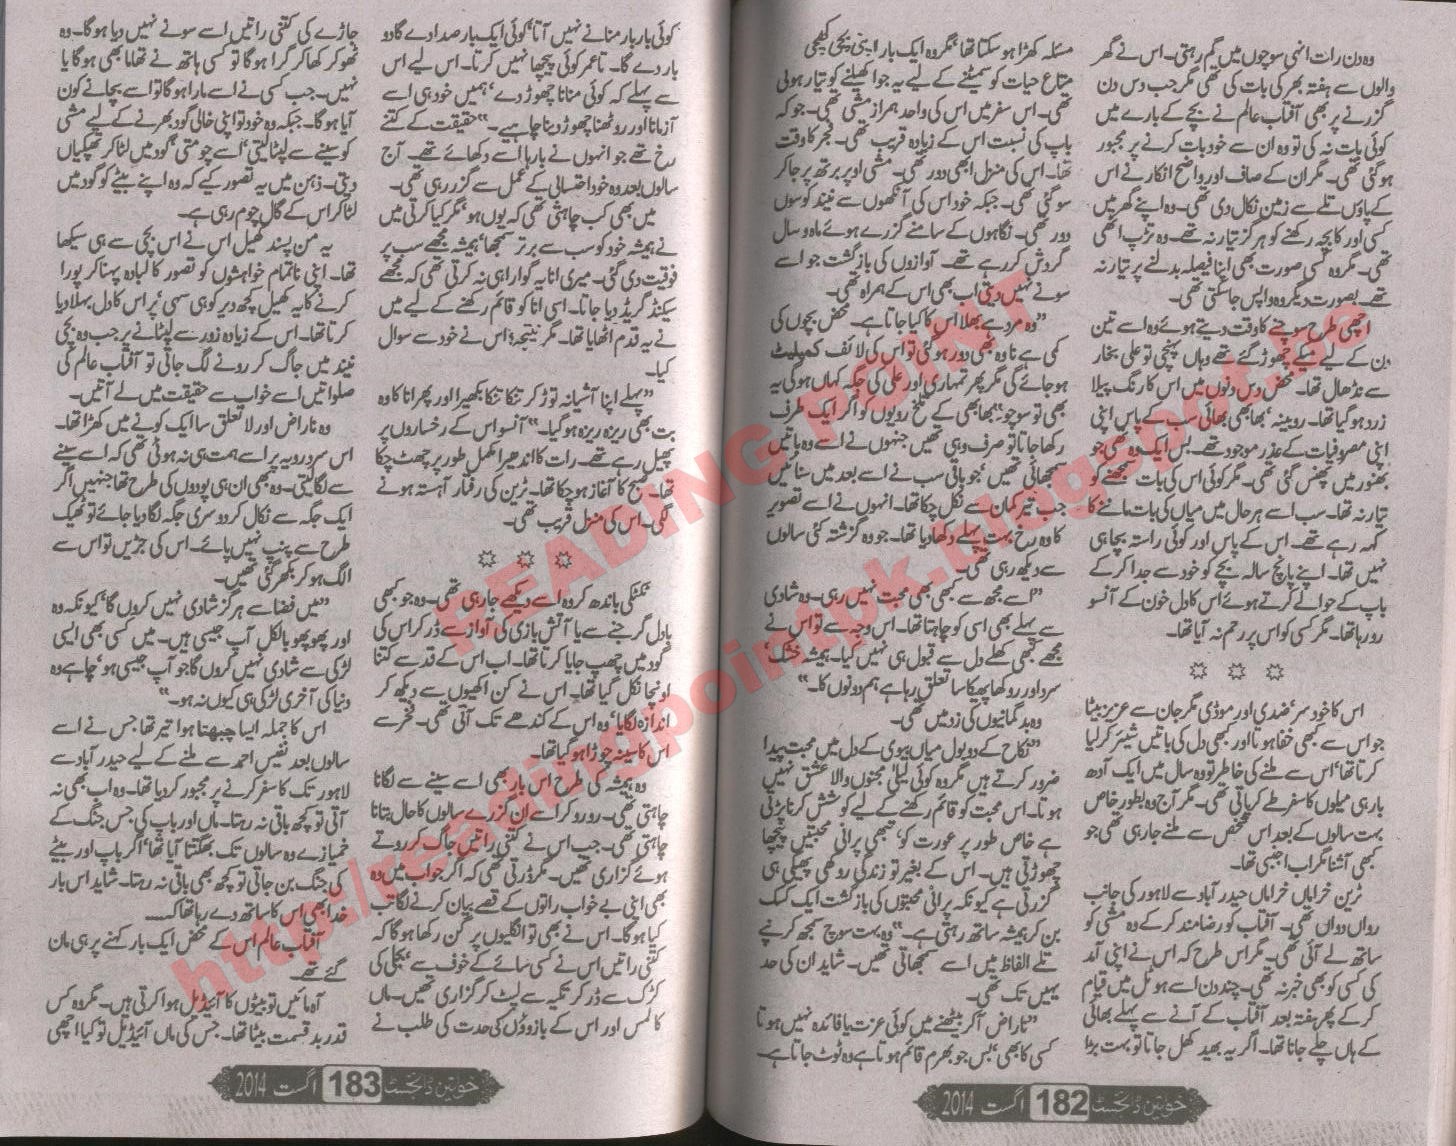 وہ دن رات انہی سوچوں میں گم رہتی۔ اس نے گھر
والوں سے ہفتہ بھر کی بات کی تھی مگر جب دس دن
گزرنے پر بھی آفتاب عالم نے بچے کے بارے میں
کوئی بات نہ کی تو وہ ان سے خود بات کرنے پر مجبور
ہو گئی تھی۔ مگر ان کے صاف اور واضح انکار نے اس
کے پاؤں تلے سے زمین نکال دی تھی۔ وہ اپنے گھر میں
کسی اور کا بچہ رکھنے کو ہرگز تیار نہ تھے۔ وہ تڑپ اٹھی
تھی۔ مگر وہ کسی صورت بھی اپنا فیصلہ بدلنے پر تیار نہ
تھے۔ بصورت دیگر وہ واپس جا سکتی تھی۔
اچھی طرح سوچنے کا وقت دیتے ہوئے وہ اسے تین
دن کے لیے میکے چھوڑ گئے تھے وہاں پہنچی تو علی بخار
سے نڈھال تھا۔ محض دس دنوں میں اس کا رنگ پیلا
زرد ہو گیا تھا۔ روبینہ، بھابھی بھائی سب کے پاس اپنی
اپنی مصروفیات کے عذر موجود تھے۔ بس ایک وہ تھی جو
بھنور میں پھنس گئی تھی۔ مگر کوئی اس کی بات سمجھنے کو
تیار نہ تھا۔ سب اسے ہر حال میں میاں کی بات ماننے کا
کہہ رہے تھے۔ اس کے پاس اور کوئی راستہ بچا ہی
نہیں تھا۔ اپنے پانچ سالہ بچے کو خود سے جدا کر کے
باپ کے حوالے کرتے ہوئے اس کا دل خون کے آنسو
رو رہا تھا۔ مگر کسی کو اس پر رحم نہ آیا تھا۔
اس کا خود سر، ضدی اور موڈی مگر جان سے عزیز بیٹا
جو اس سے کبھی خفا ہوتا اور کبھی دل کی باتیں شیئر کر لیا
کرتا تھا، اس سے ملنے کی خاطر تو وہ سال میں ایک آدھ
بار ہی میلوں کا سفر طے کر پاتی تھی۔ مگر آج وہ بطور خاص
بہت سالوں کے بعد اس شخص سے ملنے جا رہی تھی جو
کبھی آشنا مگر اب اجنبی تھا۔
ٹرین خراماں خراماں حیدر آباد سے لاہور کی جانب
رواں دواں تھی۔ آفتاب کو رضامند کر کے وہ مشی کو
ساتھ لے آئی تھی۔ مگر اس طرح کہ اس نے اپنی آمد
کی کسی کو بھی خبر نہ تھی۔ چند دن اسے ہوٹل میں قیام
کر کے پھر ہفتہ بعد آفتاب کے آنے سے پہلے بھائی
کے ہاں چلے جانا تھا۔ اگر یہ بھید کھل جاتا تو بہت بڑا
مسئلہ کھڑا ہو سکتا تھا، مگر وہ ایک بار اپنی بچی کھچی
متاع حیات کو سمیٹنے کے لیے یہ جوا کھیلنے کو تیار ہوئی
تھی۔ اس سفر میں اس کی واحد ہمراز مشی تھی۔ جو کہ
باپ کی نسبت اس کے زیادہ قریب تھی۔ فجر کا وقت
تھا۔ اس کی منزل ابھی دور تھی۔ مشی اوپر برتھ پر جا کر
سو گئی تھی۔ جبکہ خود اس کی آنکھوں سے نیند کوسوں
دور تھی۔ نگاہوں کے سامنے گزرے ہوئے ماہ و سال
گردش کر رہے تھے۔ آوازوں کی بازگشت جو اسے
سونے نہیں دیتی اب بھی اس کے ہمراہ تھی۔
"وہ مرد ہے بھلا اس کا کیا جاتا ہے۔ محض بچوں کی
کمی ہے نا وہ بھی دور ہو گئی تو اس کی لائف کمپلیٹ
ہو جائے گی مگر پھر تمہاری اور علی کی جگہ کہاں ہو گی یہ
بھی تو سوچو" بھابھی کے تلخ رویوں کو اگر ایک طرف
رکھا جاتا تو صرف وہی تھیں جنہوں نے اسے وہ باتیں
سمجھائی تھیں، جو باقی سب نے اسے بعد میں سنائیں
جب تیر کمان سے نکل چکا تھا۔ انہوں نے اسے تصویر
کا وہ رخ بہت پہلے دکھا دیا تھا۔ جو وہ گزشتہ کئی سالوں
سے دیکھ رہی تھی۔
"اسے مجھ سے کبھی بھی محبت نہیں رہی۔ وہ شادی
سے پہلے بھی اسی کو چاہتا تھا۔ اس وجہ سے تو اس نے
مجھے کبھی کھلے دل سے قبول ہی نہیں کیا۔ ہمیشہ خشک،
سرد اور روکھا پھیکا سا تعلق رہا ہے ہم دونوں کا۔"
وہ بدگمانیوں کی زد میں تھی۔
"نکاح کے دو بول میاں بیوی کے دل میں محبت پیدا
ضرور کرتے ہیں مگر وہ کوئی لیلیٰ مجنوں والا عشق نہیں
ہوتا۔ اس محبت کو قائم رکھنے کے لیے کوشش کرنا پڑتی
ہے خاص طور پر عورت کو، تبھی پرانی محبتیں پیچھا
چھوڑتی ہیں۔ اس کے بغیر تو زندگی روکھی پھیکی ہی
گزرتی ہے کیونکہ پرانی محبتوں کی بازگشت ایک کسک
بن کر ہمیشہ ساتھ رہتی ہے۔" وہ بہت سوچ سمجھ کر نپے
تلے الفاظ میں اسے سمجھاتی تھیں۔ شاید ان کی حد
یہیں تک تھی۔
"ناراض آ کر بیٹھنے میں کوئی عزت یا فائدہ نہیں ہوتا
کسی کا بھی، بس جو بھرم قائم ہوتا ہے وہ ٹوٹ جاتا ہے۔
خواتین ڈائجسٹ 182 اگست 2014
کوئی بار بار منانے نہیں آتا، کوئی ایک بار صدا دے گا دو
بار دے گا۔ تا عمر کوئی پیچھا نہیں کرتا۔ اس لیے اس
سے پہلے کہ کوئی منانا چھوڑ دے، ہمیں خود ہی اسے
آزمانا اور روٹھنا چھوڑ دینا چاہیے۔" حقیقت کے کتنے
رخ تھے جو انہوں نے بارہا اسے دکھائے تھے۔ آج
سالوں بعد وہ خود احتسابی کے عمل سے گزر رہی تھی۔
میں بھی کب چاہتی تھی کہ یوں ہو، مگر کیا کرتی میں
نے ہمیشہ خود کو سب سے برتر سمجھا، ہمیشہ مجھے سب پر
فوقیت دی گئی۔ میری انا یہ گوارا ہی نہ کرتی تھی کہ مجھے
سیکنڈ گریڈ دیا جاتا۔ اسی انا کو قائم رکھنے کے لیے میں
نے یہ قدم اٹھایا تھا۔ مگر نتیجہ؟ اس نے خود سے سوال
کیا۔
"پہلے اپنا آشیانہ توڑ کر تنکا تنکا بکھیرا اور پھر انا کا وہ
بت بھی ریزہ ریزہ ہو گیا۔" آنسو اس کے رخساروں پر
پھیل رہے تھے۔ رات کا اندھیرا مکمل طور پر چھٹ چکا
تھا۔ صبح کا آغاز ہو چکا تھا۔ ٹرین کی رفتار آہستہ ہونے
لگی۔ اس کی منزل قریب تھی۔
ٹکٹکی باندھ کر وہ اسے دیکھے جا رہی تھی۔ وہ جو کبھی
بادل گرجنے سے یا آتش بازی کی آواز سے ڈر کر اس کی
گود میں چھپ جایا کرتا تھا۔ اب اس کے قد سے کتنا
اونچا نکل گیا تھا۔ اس نے کن اکھیوں سے دیکھ کر
اندازہ لگایا، وہ اس کے کندھے تک آتی تھی۔ فخر سے
اس کا سینہ چوڑا ہو گیا تھا۔
وہ ہمیشہ کی طرح اس بار بھی اسے سینے سے لگانا
چاہتی تھی۔ رو رو کر اسے ان گزرے سالوں کا حال بتانا
چاہتی تھی۔ جب اس نے کتنی راتیں جاگ کر روتے
ہوئے گزاری تھیں۔ مگر ڈرتی تھی کہ اگر جواب میں وہ
بھی اپنی بے خواب راتوں کے قصے بیان کرنے لگا تب
کیا ہو گا۔ اس نے بھی تو انگلیوں پر گن رکھا ہو گا کہ
کتنی راتیں اس نے کسی سائے کے خوف سے، بجلی کی
کڑک سے ڈر کر تکیہ سے لپٹ کر گزاری تھیں۔ ماں
کا لمس اور اس کے بازوؤں کی حدت کی طلب نے
جاڑے کی کتنی راتیں اسے سونے نہیں دیا ہو گا۔ وہ
ٹھوکر کھا کر گرا ہو گا تو کسی ہاتھ نے تھاما بھی ہو گا یا
نہیں۔ جب کسی نے اسے مارا ہو گا تو اسے بچانے کون
آیا ہو گا۔ جبکہ وہ خود تو اپنی خالی گود بھرنے کے لیے مشی
کو سینے سے لپٹا لیتی، اسے چومتی، گود میں لٹا کر تھپکیاں
دیتی۔ ذہن میں یہ تصور کیے کہ وہ اپنے بیٹے کو گود میں
لٹا کر اس کے گال چوم رہی ہے۔
یہ من پسند کھیل اس نے اس بچی سے ہی سیکھا
تھا۔ اپنی ناتمام خواہشوں کو تصور کا لبادہ پہنا کر پورا
کرنے کا یہ کھیل کچھ دیر کو ہی سہی، پر اس کا دل بہلا دیا
کرتا تھا۔ اس کے زیادہ زور سے لپٹانے پر جب وہ بچی
نیند میں جاگ کر رونے لگ جاتی تو آفتاب عالم کی
صلواتیں اسے خواب سے حقیقت میں لے آتیں۔
وہ ناراض اور لا تعلق سا ایک کونے میں کھڑا تھا۔
اس سرد رویہ پر اسے ہمت ہی نہ ہوئی تھی کہ اسے سینے
سے لگا لیتی۔ وہ بھی ان ہی پودوں کی طرح تھا جنہیں اگر
ایک جگہ سے نکال کر دوسری جگہ لگا دیا جائے تو ٹھیک
طرح سے پنپ نہیں پاتے۔ اس کی جڑیں تو اس سے
الگ ہو کر بکھر گئی تھیں۔
"میں فضا سے ہرگز شادی نہیں کروں گا، کیونکہ وہ
اور پھوپھو بالکل آپ جیسی ہیں۔ میں کسی بھی ایسی
لڑکی سے شادی نہیں کروں گا جو آپ جیسی ہو، چاہے وہ
دنیا کی آخری لڑکی ہی کیوں نہ ہو۔"
اس کا جملہ ایسا چبھتا ہوا تیر تھا جس نے اسے
سالوں بعد نفیس احمد سے ملنے کے لیے حیدر آباد سے
لاہور تک کا سفر کرنے پر مجبور کر دیا تھا۔ وہ اب بھی نہ
آتی تو کچھ باقی نہ رہتا۔ ماں اور باپ کی جس جنگ کے
خمیازے وہ سالوں تک بھگتتا آیا تھا، اگر باپ اور بیٹے
کی جنگ بن جاتی تو کچھ بھی باقی نہ رہتا۔ شاید اس بار
خدا بھی اس کا ساتھ دے رہا تھا کہ۔۔۔
آفتاب عالم اس کے محض ایک بار کہنے پر ہی مان
گئے تھے۔
آہ مائیں تو بیٹوں کا آئیڈیل ہوا کرتی ہیں۔ مگر وہ کس
قدر بد قسمت بیٹا تھا۔ جس کی ماں آئیڈیل تو کیا اچھی
خواتین ڈائجسٹ 183 اگست 2014
READING POINT
http://readingpointpk.blogspot.be